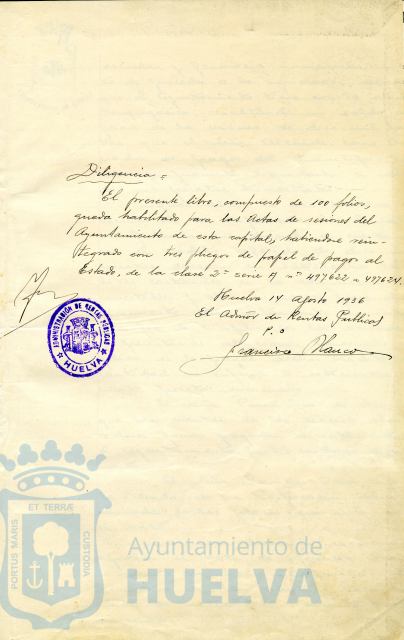 Diligencia =
El presente libro, compuesto de 100 folios,
queda habilitado para las Actas de sesiones del
Ayuntamiento de esta capital, habiendose rein-
tegrado con tres pliegos de papel de pagos al
Estado, de la clase 2ª serie A nº 497622 a 497624.
Huelva 14 Agosto 1936
El Admor de Rentas Publicas
P.O
Francisco Blanco
ADMINISTRACIÓN DE RENTAS PÚBLICAS
HUELVA
ET TERRÆ
PORTUS MARIS
CUSTODIA
Ayuntamiento de
HUELVA